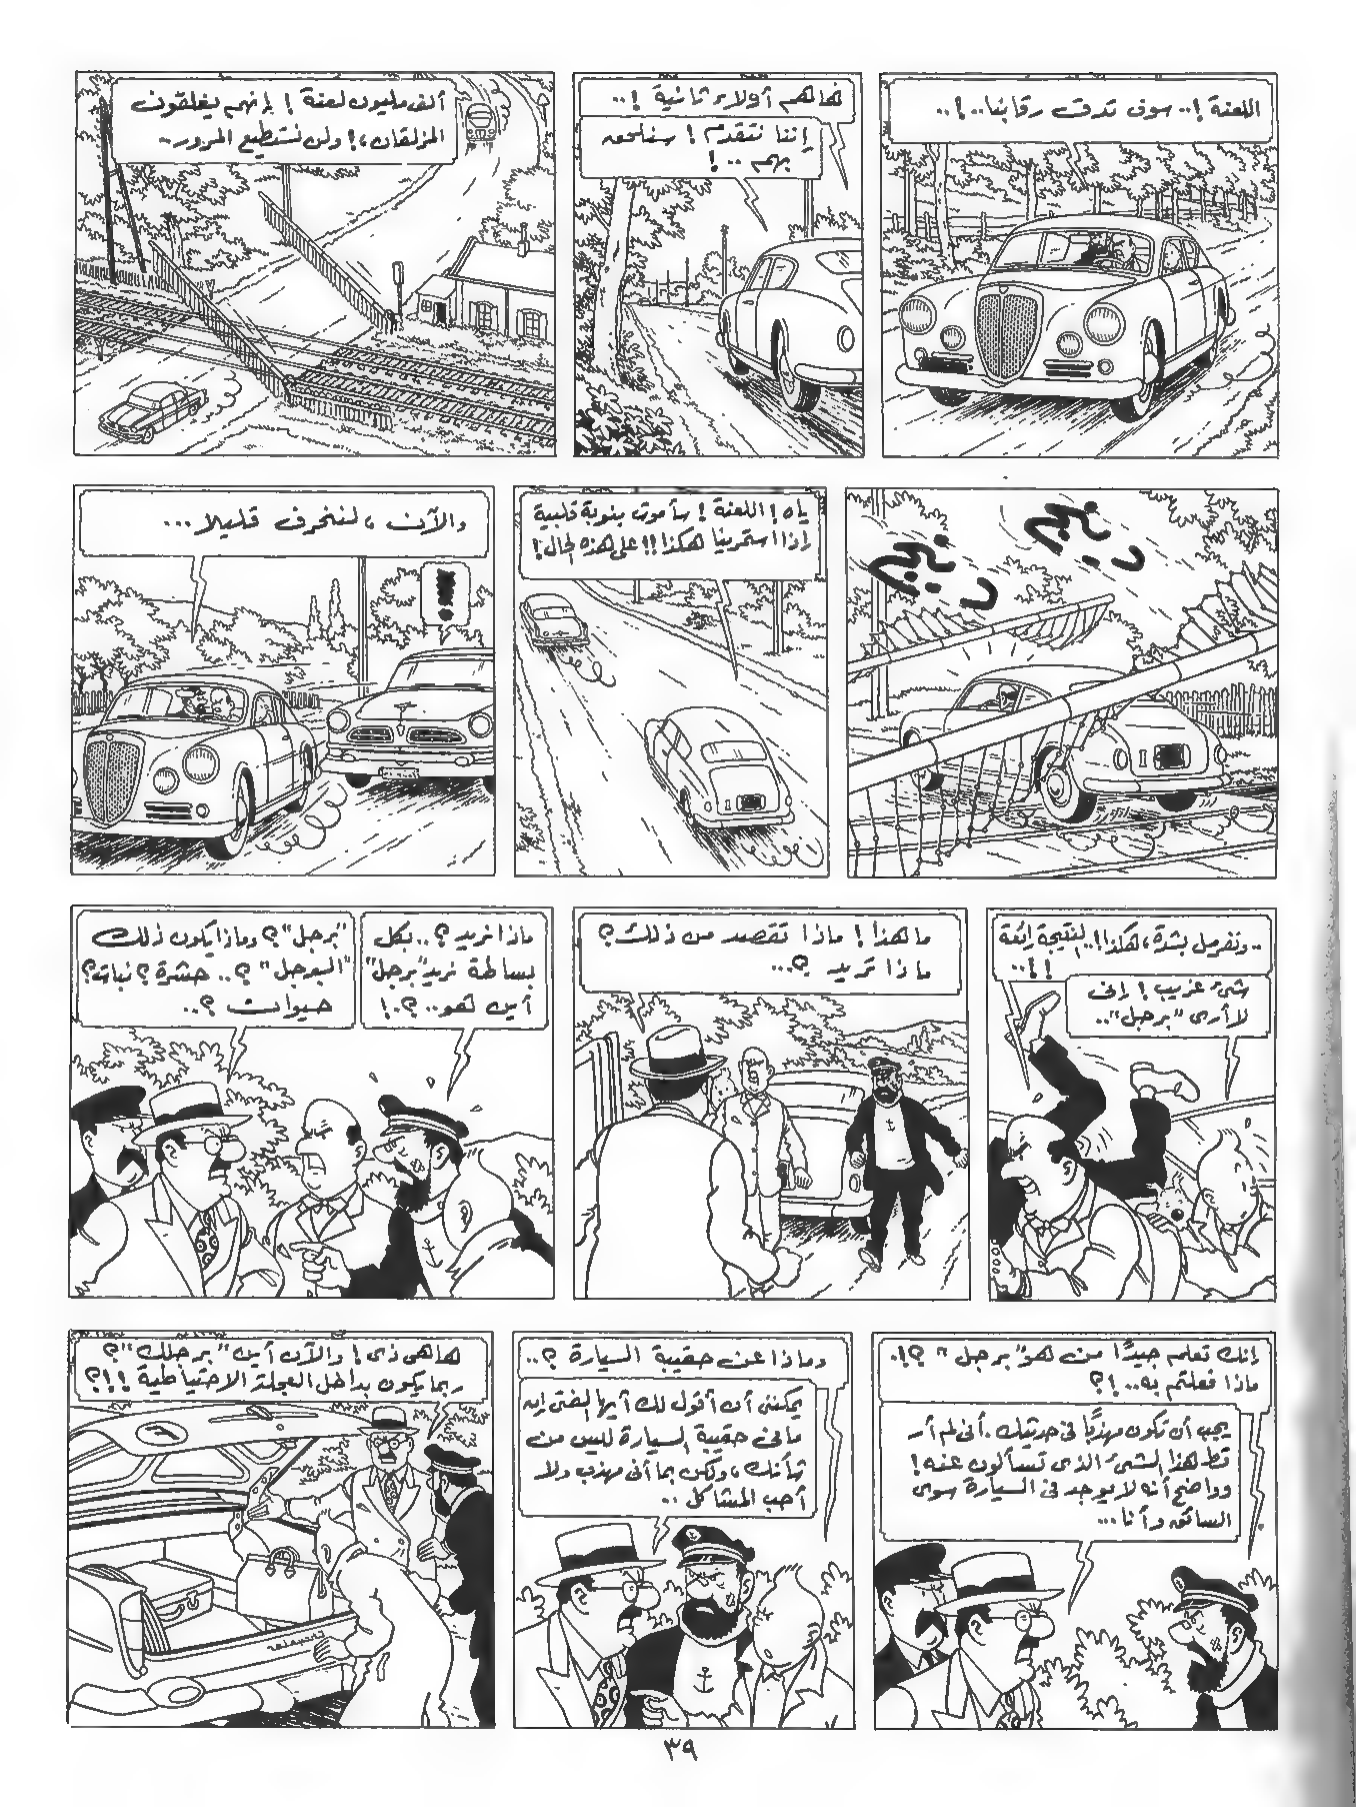 اللعنة !.. سوف تدق رقابنا.. !..
هاهم أولاء ثانية !..
إننا نتقدم ! سنلحق
بهم .. !
ألف مليون لعنة ! إنهم يغلقون
المزلقان ،! ولن نستطيع المرور..
دينج
دينج
ياه ! اللعنة ! سأموت بنوبة قلبية
إذا استمرينا هكذا !! على هذه الحال !
والآن ، لننحرف قليلا...
!
..ونفرمل بشدة ، هكذا !.. لنتيجة رائعة
!!..
شئ غريب ! إنى
لا أرى "برجل"..
ما هذا ! ماذا تقصد من ذلك ؟
ماذا تريد ؟...
ماذا نريد ؟.. بكل
بساطة نريد "برجل"
أين هو.. ؟.!
"برجل" ؟ وماذا يكون ذلك
"البرجل" ؟.. حشرة ؟ نبات ؟
حيوان ؟..
إنك تعلم جيدًا من هو "برجل" ؟!.
ماذا فعلتم به.. !؟
يجب أن تكون مهذبًا فى حديثك . أنى لم أر
قط هذا الشئ الذى تسألون عنه !
وواضح أنه لا يوجد فى السيارة سوى
السائق وأنا...
وماذا عن حقيبة السيارة ؟..
يمكننى أن أقول لك أيها الفتى إن
مافى حقيبة السيارة لليس من
شأنك ، ولكن بما أنى مهذب ولا
أحب المشاكل ..
هاهى ذى ! والآن أين "برجلك" ؟
ربما يكون بداخل العجلة الاحتياطية !!!؟
٣٩